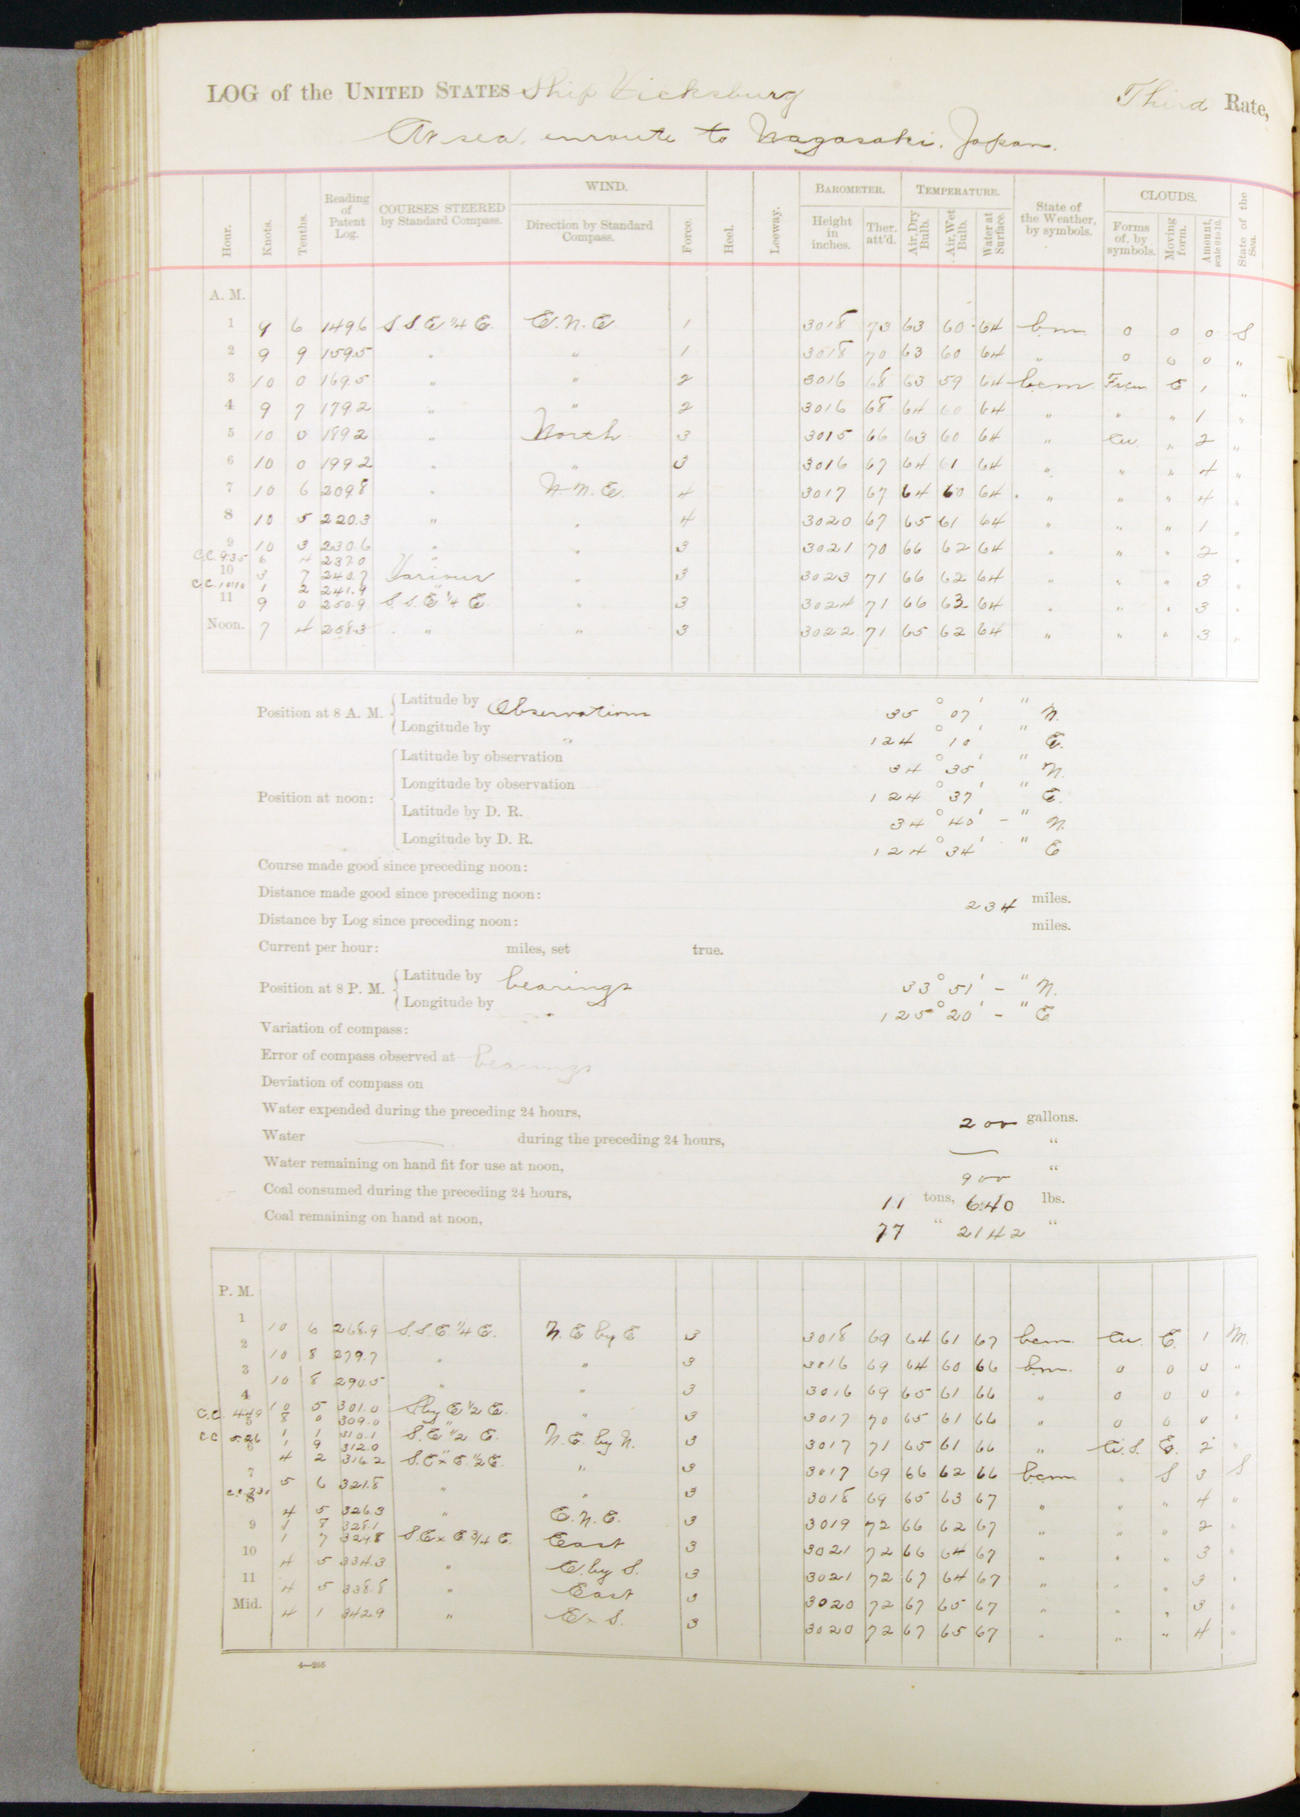 LOG of the UNITED STATES Ship Vicksburg Third Rate,
At sea, enroute to Nagasaki, Japan.
Hour. Knots. Tenths. Reading of Patent Log. COURSES STEERED by Standard Compass. WIND. Direction by Standard Compass. Force. Heel. Leeway. BAROMETER. Height in inches. Ther. att'd. TEMPERATURE. Air, Dry Bulb. Air, Wet Bulb. Water at Surface. State of the Weather, by symbols. CLOUDS. Forms of, by symbols. Moving form. Amount, scale 0 to 10. State of the Sea.
A. M.
1 9 6 149.6 S S E 1/4 E. E. N. E 1 30 18 73 63 60 64 b.m. 0 0 0 S
2 9 9 159.5 " " 1 30 18 70 63 60 64 " 0 0 0 "
3 10 0 169.5 " " 2 30 16 68 63 59 64 b.c.m. E 1 "
4 9 7 179.2 " " 2 30 16 68 64 60 64 " " " 1 "
5 10 0 189.2 " North 3 30 15 66 63 60 64 " cu. " 2 "
6 10 0 199.2 " " 3 30 16 67 64 61 64 " " " 4 "
7 10 6 209.8 " N. N. E. 4 30 17 67 64 60 64 " " " 4 "
8 10 5 220.3 " " 4 30 20 67 65 61 64 " " " 1 "
9 10 3 230.6 " " 3 30 21 70 66 62 64 " " " 2 "
C.C. 9:35 6 4 237.0 "
10 3 7 240.7 Various " 3 30 23 71 66 62 64 " " " 3 "
C.C. 10:10 1 2 241.9 "
11 9 0 250.9 S. S. E 1/4 E. " 3 30 24 71 66 63 64 " " " 3 "
Noon. 7 4 258.3 " " 3 30 22 71 65 62 64 " " " 3 "
Position at 8 A. M. Latitude by Observations 35 ° 07 ' " N.
Longitude by " 124 ° 10 ' " E.
Position at noon: Latitude by observation 34 ° 35 ' " N.
Longitude by observation 124 ° 37 ' " E.
Latitude by D. R. 34 ° 40 ' - " N.
Longitude by D. R. 124 ° 34 ' " E
Course made good since preceding noon:
Distance made good since preceding noon: 234 miles.
Distance by Log since preceding noon: miles.
Current per hour: miles, set true.
Position at 8 P. M. Latitude by bearings 33 ° 51 ' - " N.
Longitude by " 125 ° 20 ' - " E
Variation of compass:
Error of compass observed at bearings
Deviation of compass on
Water expended during the preceding 24 hours, 200 gallons.
Water during the preceding 24 hours, "
Water remaining on hand fit for use at noon, 900 "
Coal consumed during the preceding 24 hours, 11 tons, 640 lbs.
Coal remaining on hand at noon, 77 " 2142 "
P. M.
1 10 6 268.9 S. S. E. 1/4 E. N. E by E 3 30 18 69 64 61 67 bcm. cu. E. 1 M.
2 10 8 279.7 " " 3 30 16 69 64 60 66 bm. 0 0 0 "
3 10 8 290.5 " " 3 30 16 69 65 61 66 " 0 0 0 "
4 10 5 301.0 S by E 1/2 E. " 3 30 17 70 65 61 66 " 0 0 0 "
C.C. 4:49 8 0 309.0 "
5 1 1 310.1 S. E 1/2 E. N. E. by N. 3 30 17 71 65 61 66 " E. 2 "
C.C. 5:26 1 9 312.0 "
6 4 2 316.2 S. E x E. 1/2 E. " 3 30 17 69 66 62 66 bcm " S 3 S
7 5 6 321.8 " " 3 30 18 69 65 63 67 " " " 4 "
8 4 5 326.3 " E. N. E. 3 30 19 72 66 62 67 " " " 2 "
1 8 328.1
9 1 7 329.8 S. E x E 3/4 E. East 3 30 21 72 66 64 67 " " " 3 "
10 4 5 334.3 " E. by S. 3 30 21 72 67 64 67 " " " 3 "
11 4 5 338.8 " East 3 30 20 72 67 65 67 " " " 3 "
Mid. 4 1 342.9 " E x S. 3 30 20 72 67 65 67 " " " 4 "